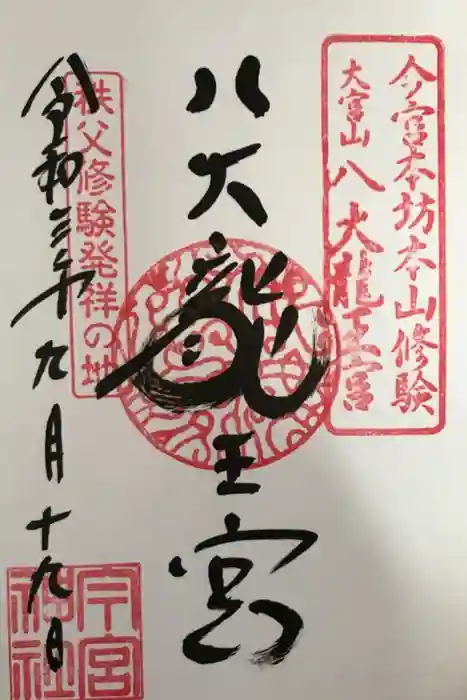 今宮本坊本山修験
大宮山 八大龍王宮
八大龍王宮
秩父修験発祥の地
令和三年九月十九日
今宮神社